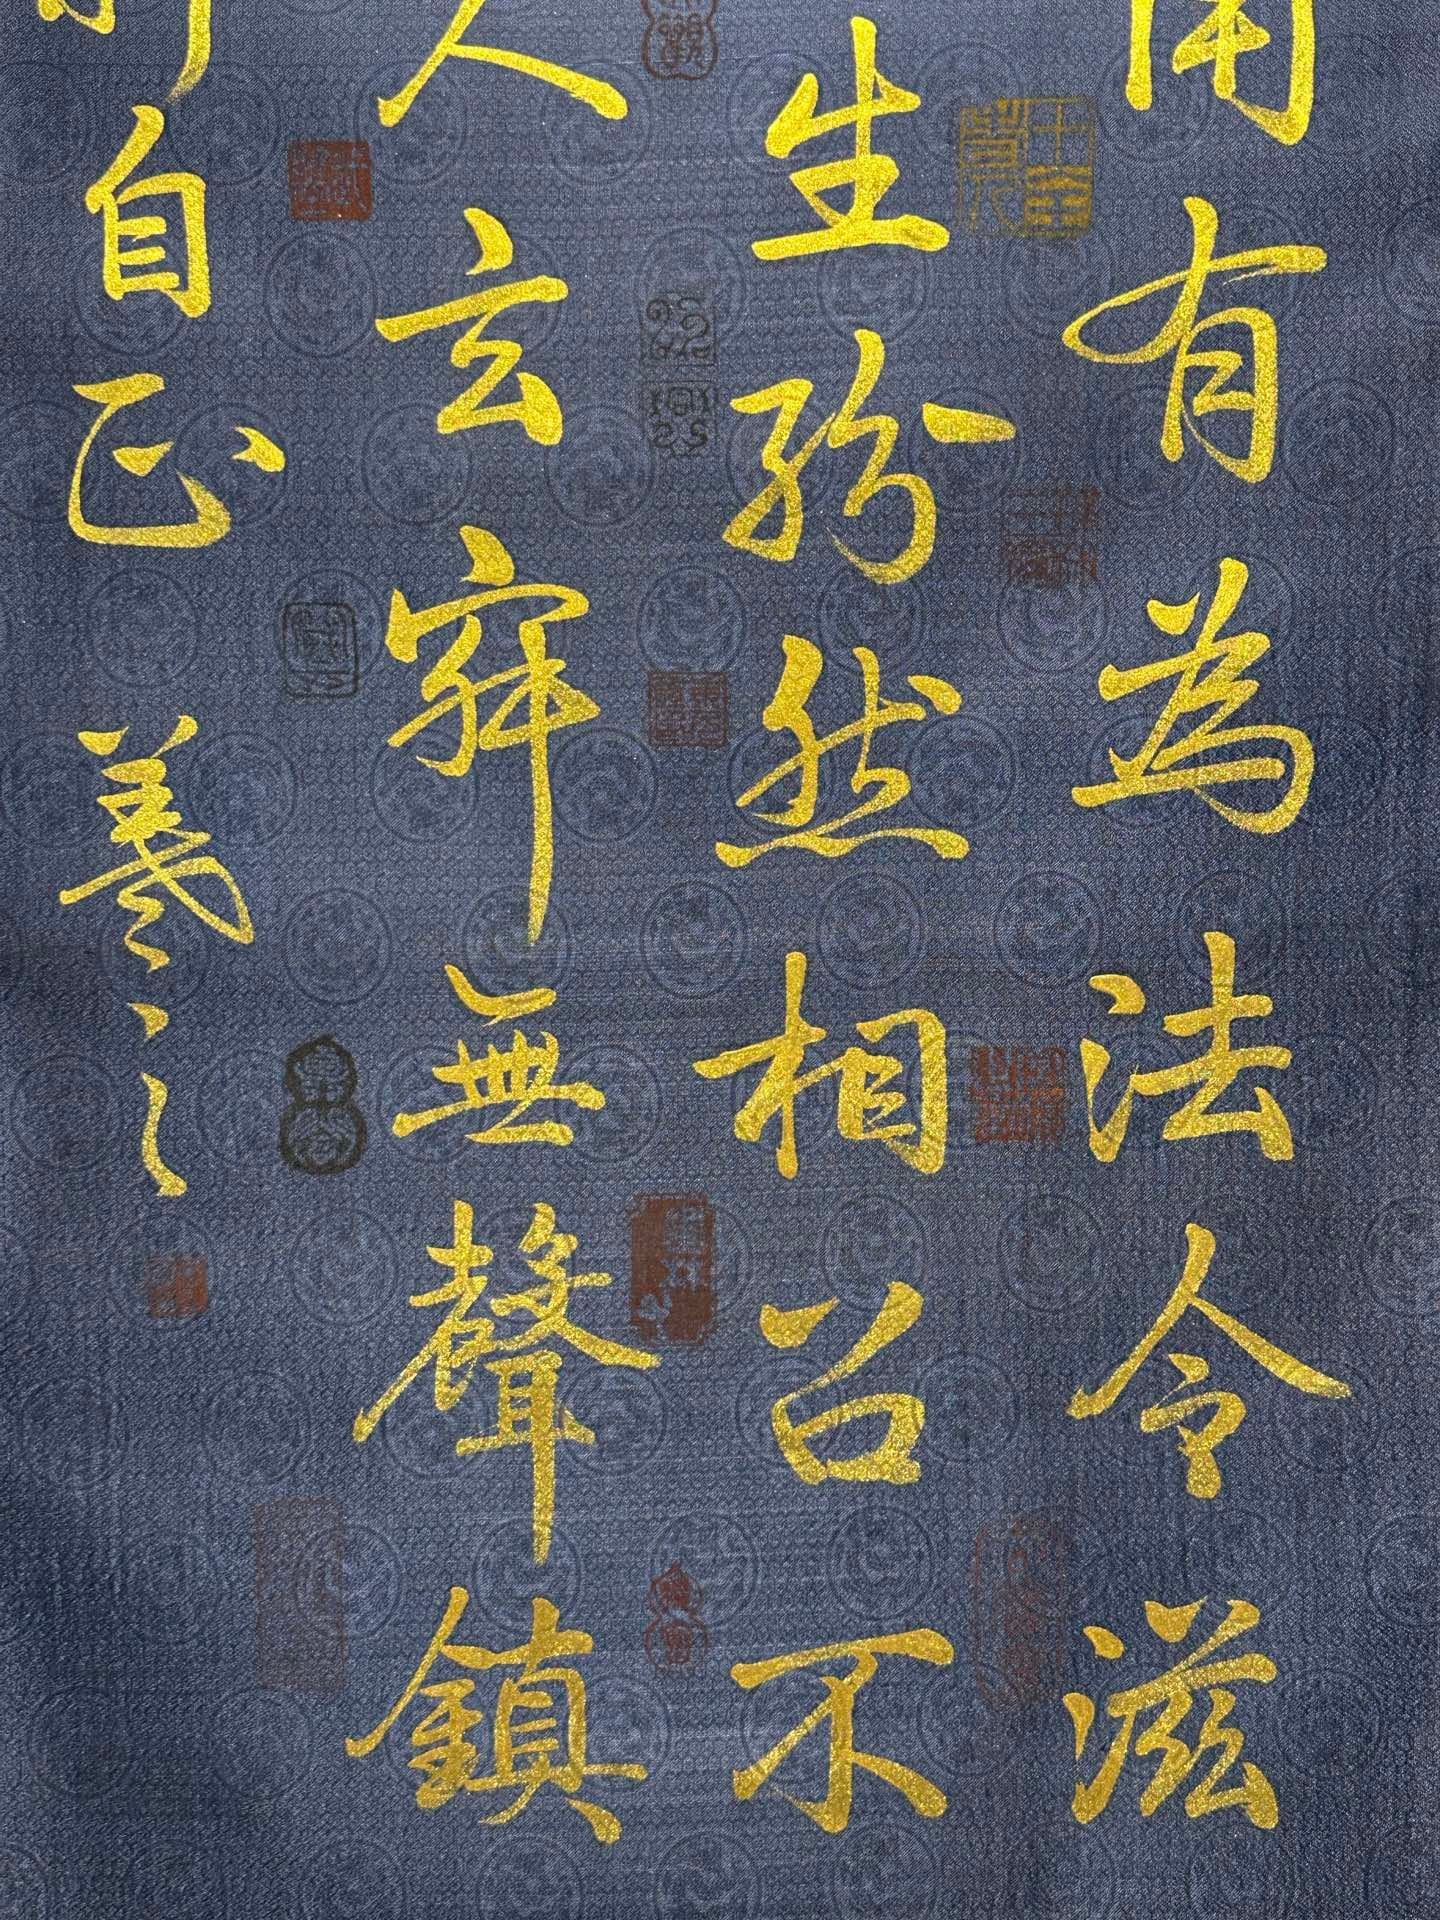 用有為法令滋
生紛然相召不
人玄寂無聲鎮
自正 羲之